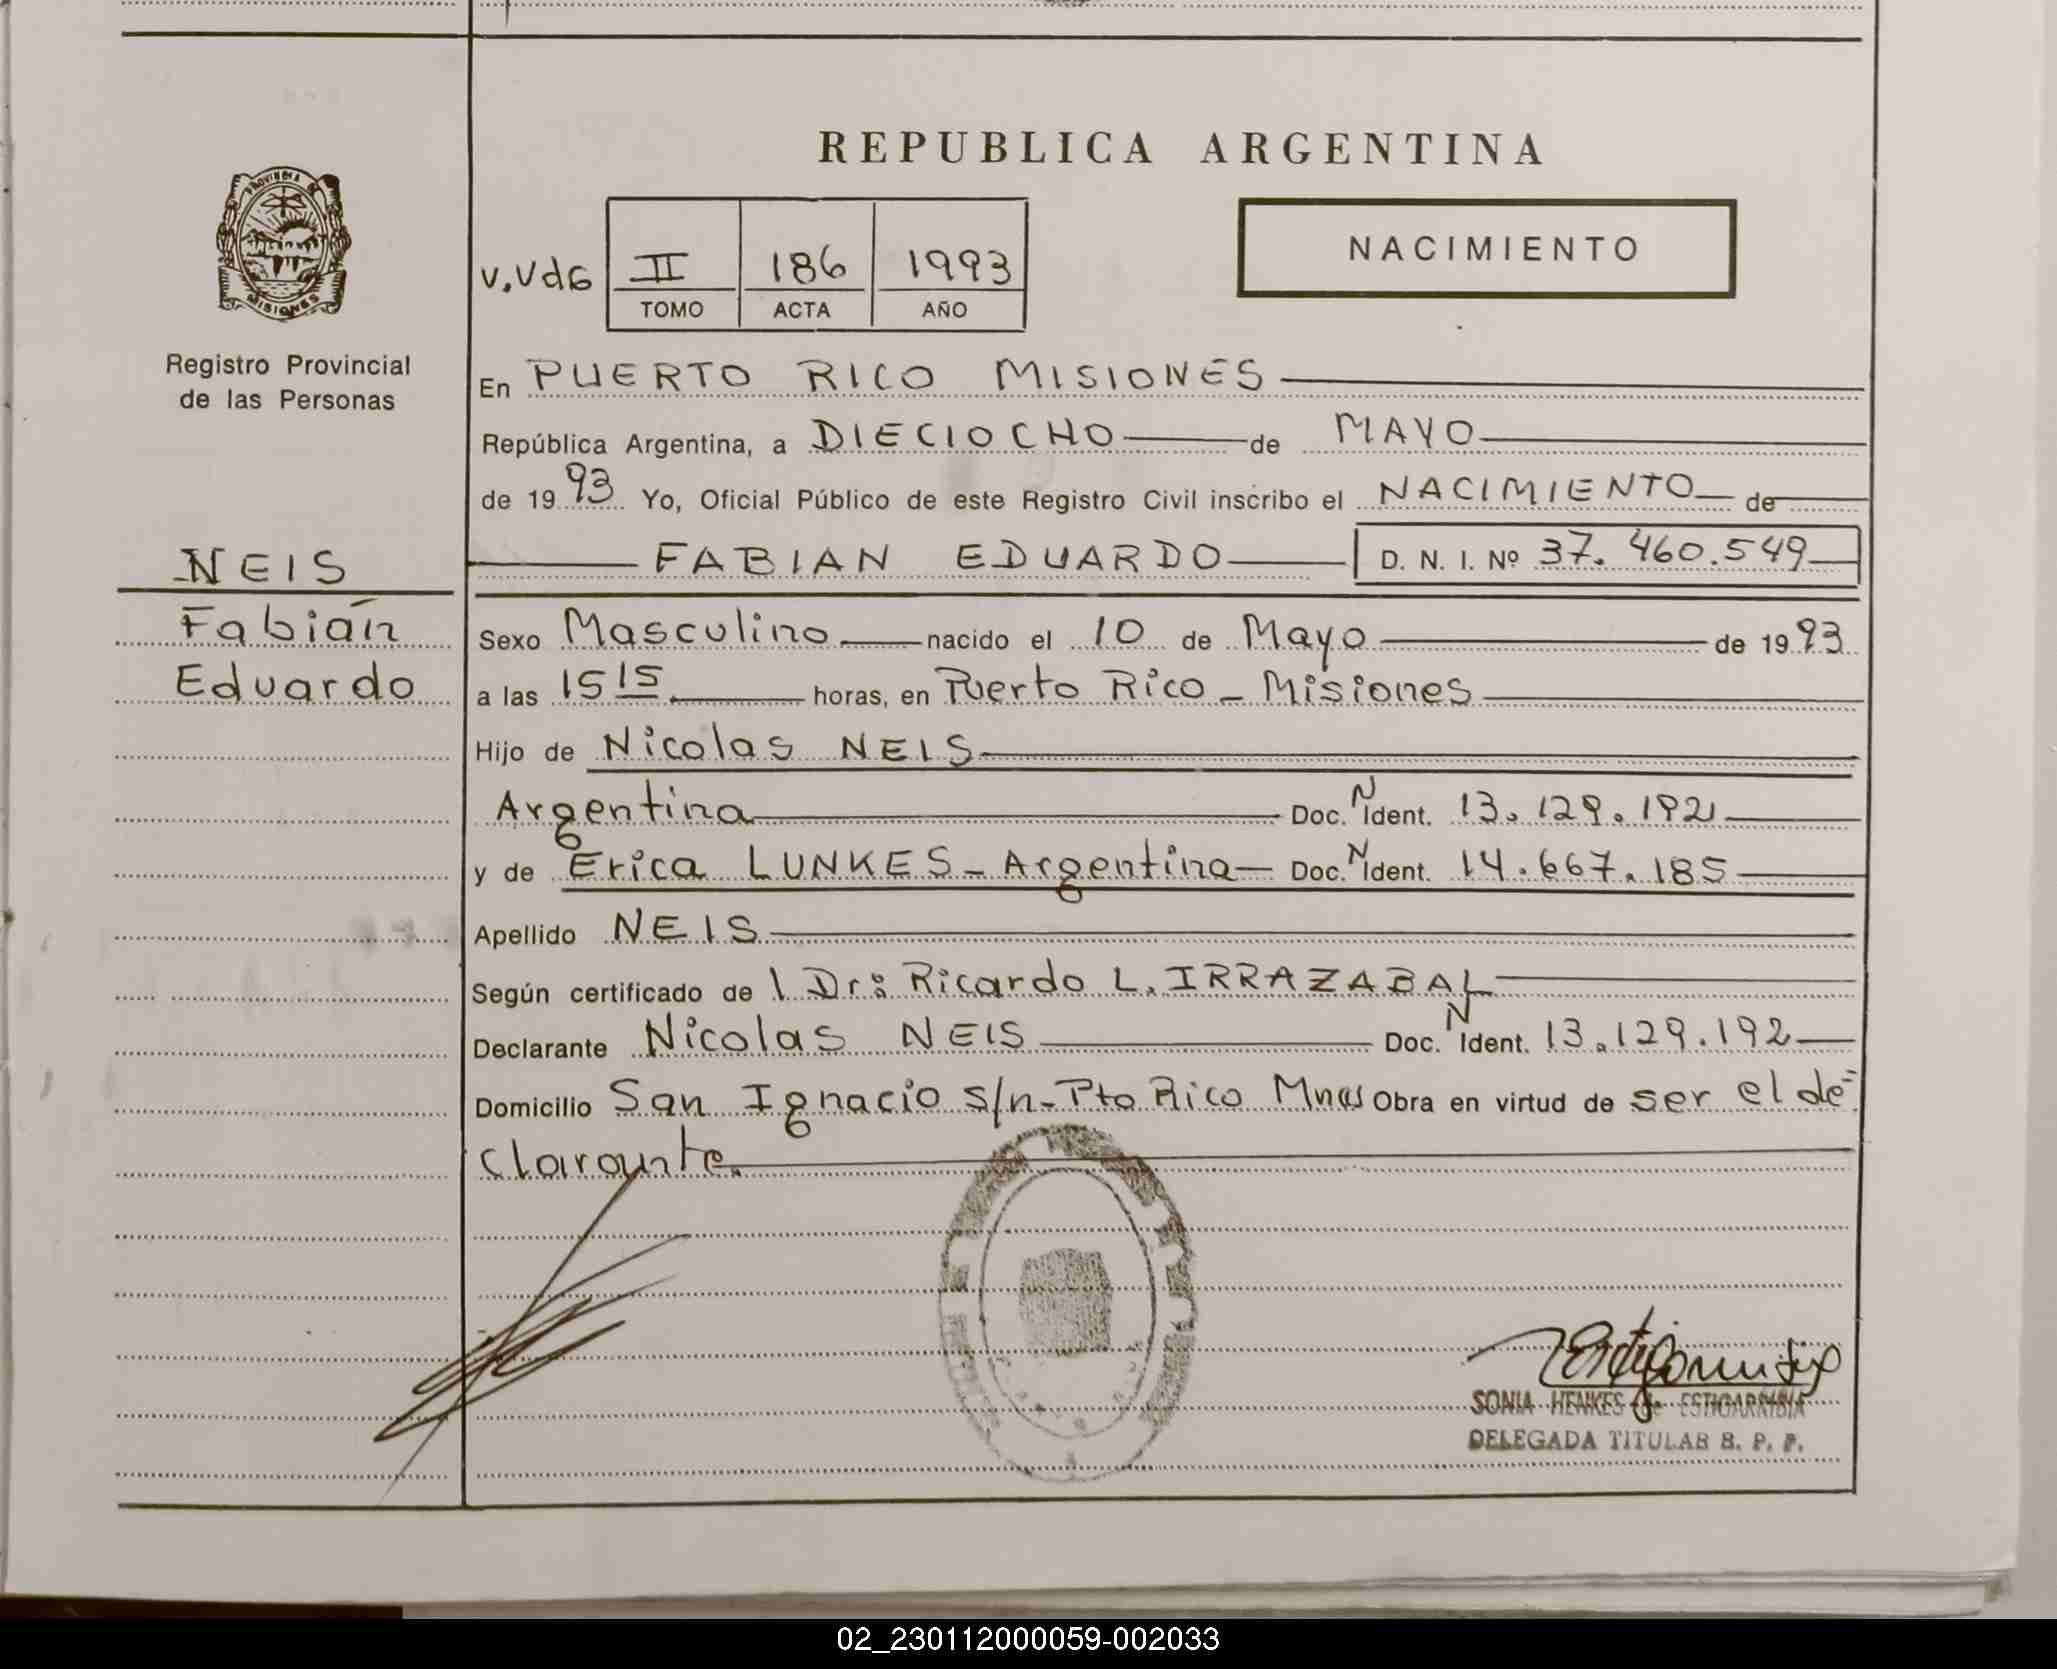 REPUBLICA ARGENTINA
PROVINCIA DE
MISIONES
Registro Provincial
de las Personas
V.VdG
II 186 1993
TOMO ACTA AÑO
NACIMIENTO
En PUERTO RICO MISIONES
República Argentina, a DIECIOCHO de MAYO
de 1993 Yo, Oficial Público de este Registro Civil inscribo el NACIMIENTO de
NEIS
Fabián
Eduardo
FABIAN EDUARDO D. N. I. Nº 37.460.549
Sexo Masculino nacido el 10 de Mayo de 1993
a las 15 15 horas, en Puerto Rico - Misiones
Hijo de Nicolas NEIS
Argentina Doc. N Ident. 13.129.192
y de Erica LUNKES - Argentina Doc. N Ident. 14.667.185
Apellido NEIS
Según certificado de l Dr: Ricardo L. IRRAZABAL
Declarante Nicolas NEIS Doc. N Ident. 13.129.192
Domicilio San Ignacio s/n - Pto Rico Mnes Obra en virtud de ser el de=
clarante.
SONIA HENKES de ESTIGARRIBIA
DELEGADA TITULAR R. P. P.
02_230112000059-002033